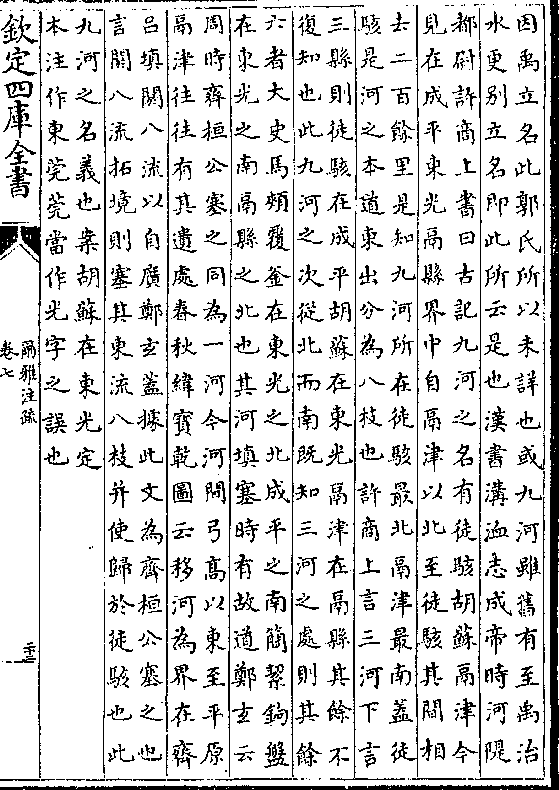 因禹立名此郭氏所以未詳也或九河雖舊有至禹治
水更別立名即此所云是也漢書溝洫志成帝時河隄
都尉許商上書曰古記九河之名有徒駭胡蘇鬲津今
見在成平東光鬲縣界中自鬲津以北至徒駭其間相
去二百餘里是知九河所在徒駭最北鬲津最南蓋徒
駭是河之本道東出分為八枝也許商上言三河下言
三縣則徒駭在成平胡蘇在東光鬲津在鬲縣其餘不
復知也此九河之次從北而南既知三河之處則其餘
六者大史馬頰覆釜在東光之北成平之南簡絜鉤盤
在東光之南鬲縣之北也其河填塞時有故道鄭玄云
周時齊桓公塞之同為一河今河間弓高以東至平原
鬲津往往有其遺處春秋緯寶乾圖云移河為界在齊
呂填閼八流以自廣鄭玄蓋據此文為齊桓公塞之也
言閼八流拓境則塞其東流八枝并使歸於徒駭也此
九河之名義也案胡蘇在東光定
本注作東莞莞當作光字之誤也
欽定四庫全書
爾雅注疏
卷七